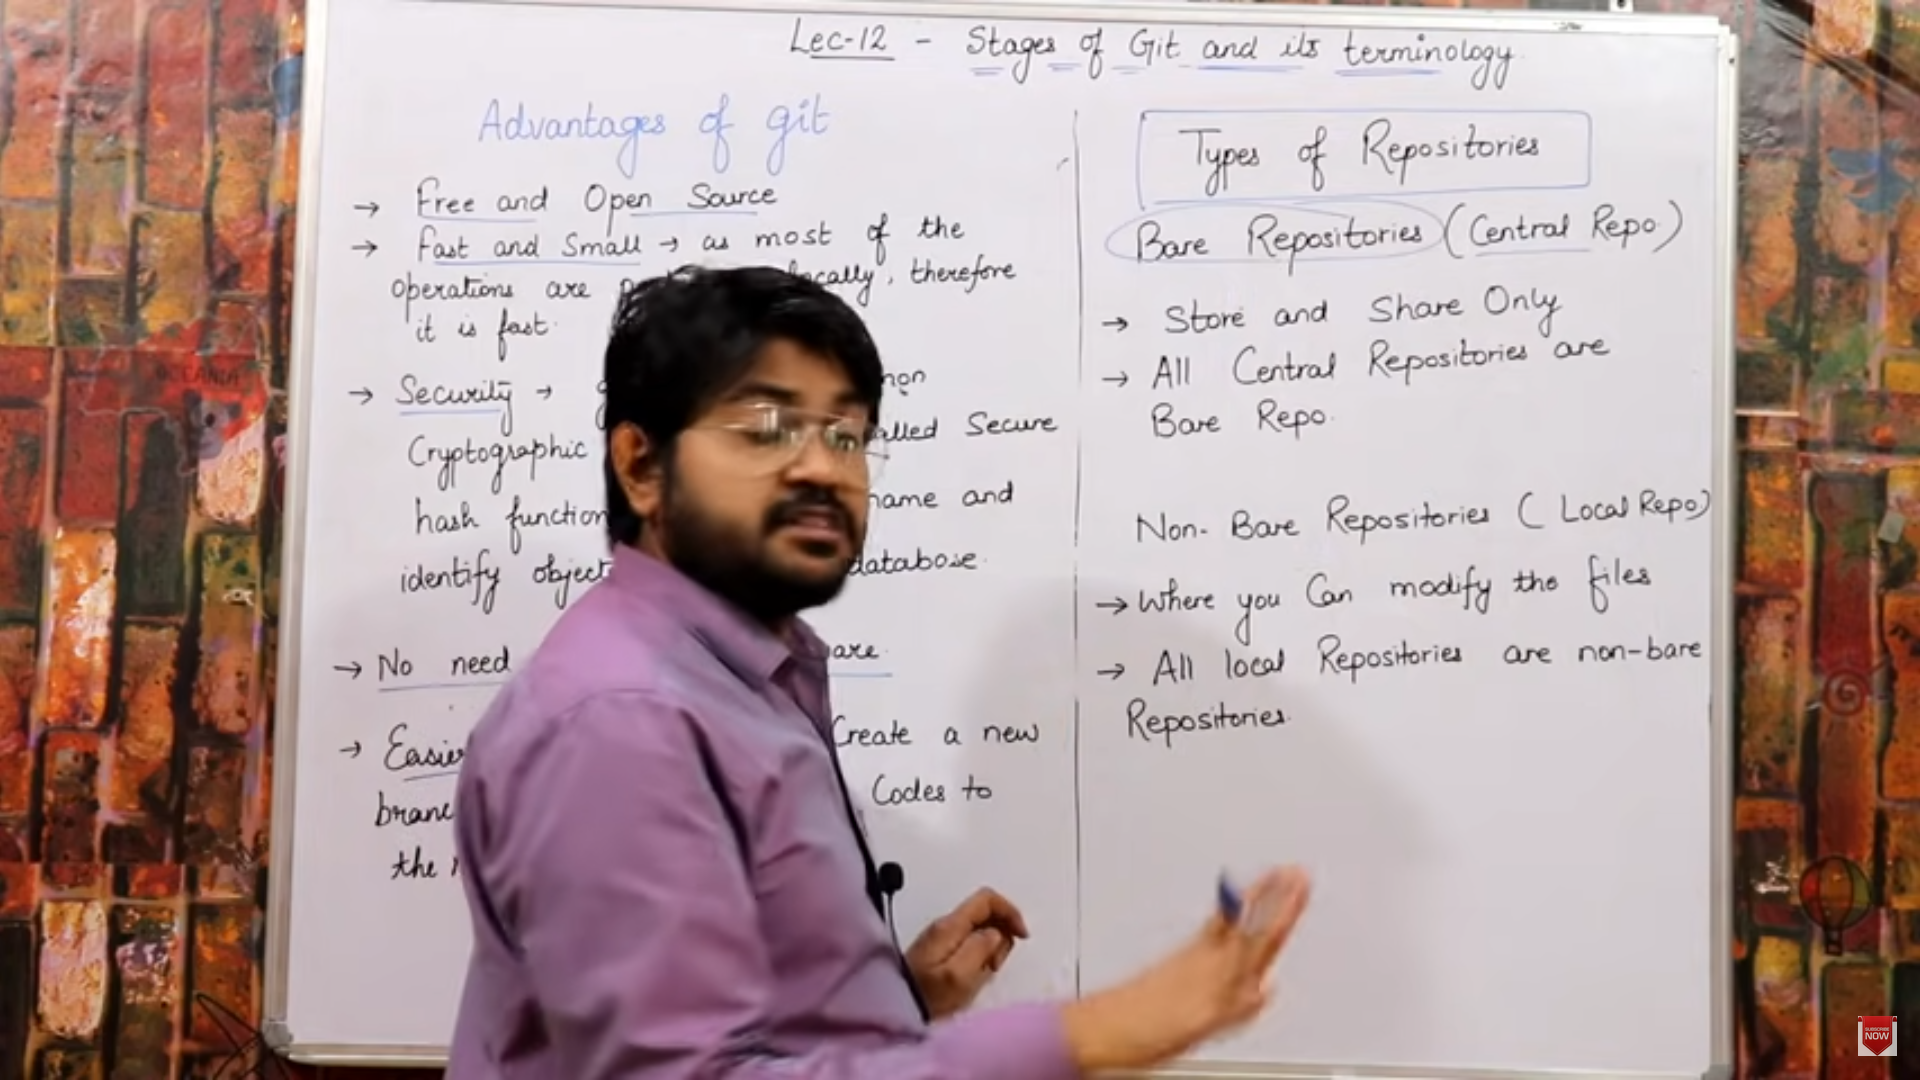 Lec-12 - Stages of Git and its terminology
Advantages of git
→ Free and Open Source
→ Fast and Small → as most of the
operations are locally, therefore
it is fast.
→ Security →
Cryptographic Secure
hash function name and
identify object database.
→ No need
→ Easier Create a new
Codes to
the
Types of Repositories
Bare Repositories (Central Repo.)
→ Store and Share Only
→ All Central Repositories are
Bare Repo.
Non-Bare Repositories (Local Repo)
→ Where you Can modify the files
→ All local Repositories are non-bare
Repositories.
SUBSCRIBE
NOW